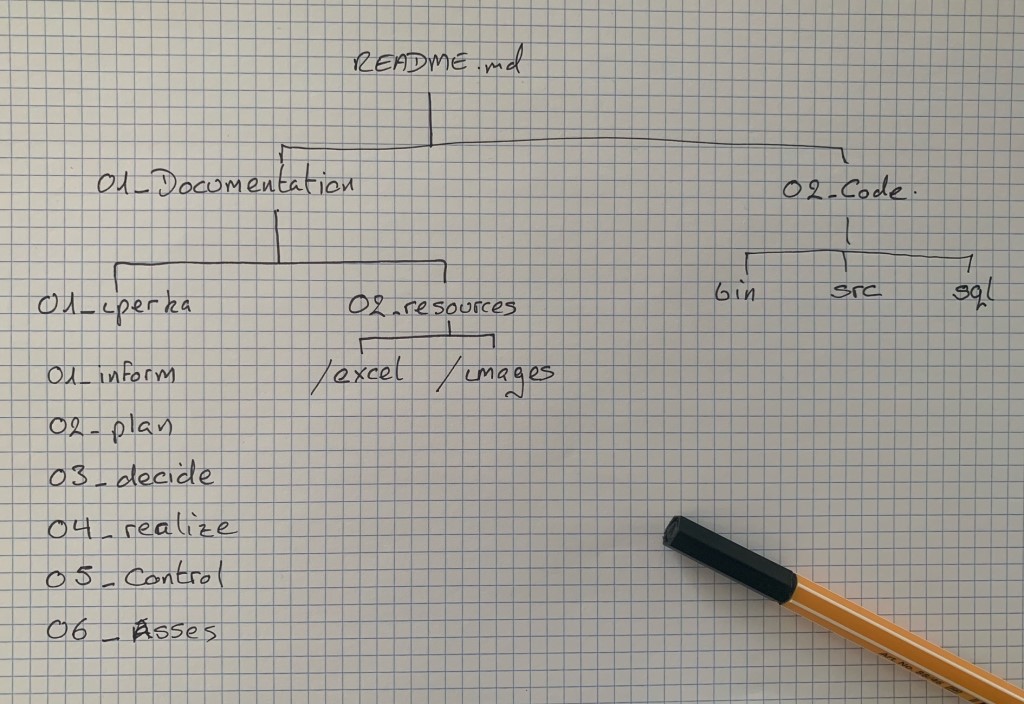 README.md
01_Documentation
02_Code.
01_iperka
02_resources
bin
src
sql
01_inform
/excel
/images
02_plan
03_decide
04_realize
05_Control
06_Asses